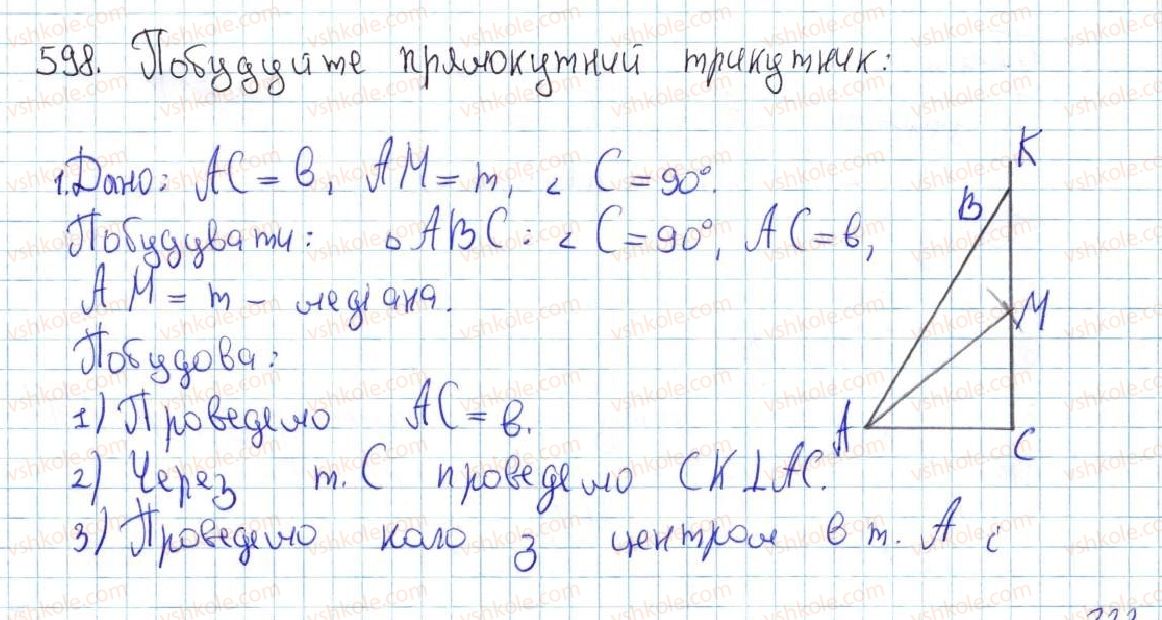 598. Побудуйте прямокутний трикутник:
1. Дано: AC = b, AM = m, ∠ C = 90°.
Побудувати: △ ABC: ∠ C = 90°, AC = b,
AM = m – медіана.
Побудова:
1) Проведемо AC = b.
2) Через т. C проведемо CK ⊥ AC.
3) Проведемо коло з центром в т. A і
K
B
M
A
C
vshkole.com